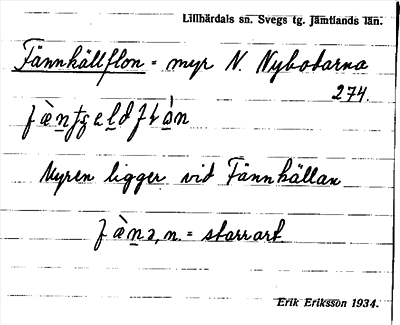 Lillhärdals sn. Svegs tg. Jämtlands län.
Fännkällflon = myr N. Nybodarna
274.
Myren ligger vid Fännkällan
fὲn̲ə, n. = starrart
Erik Eriksson 1934.